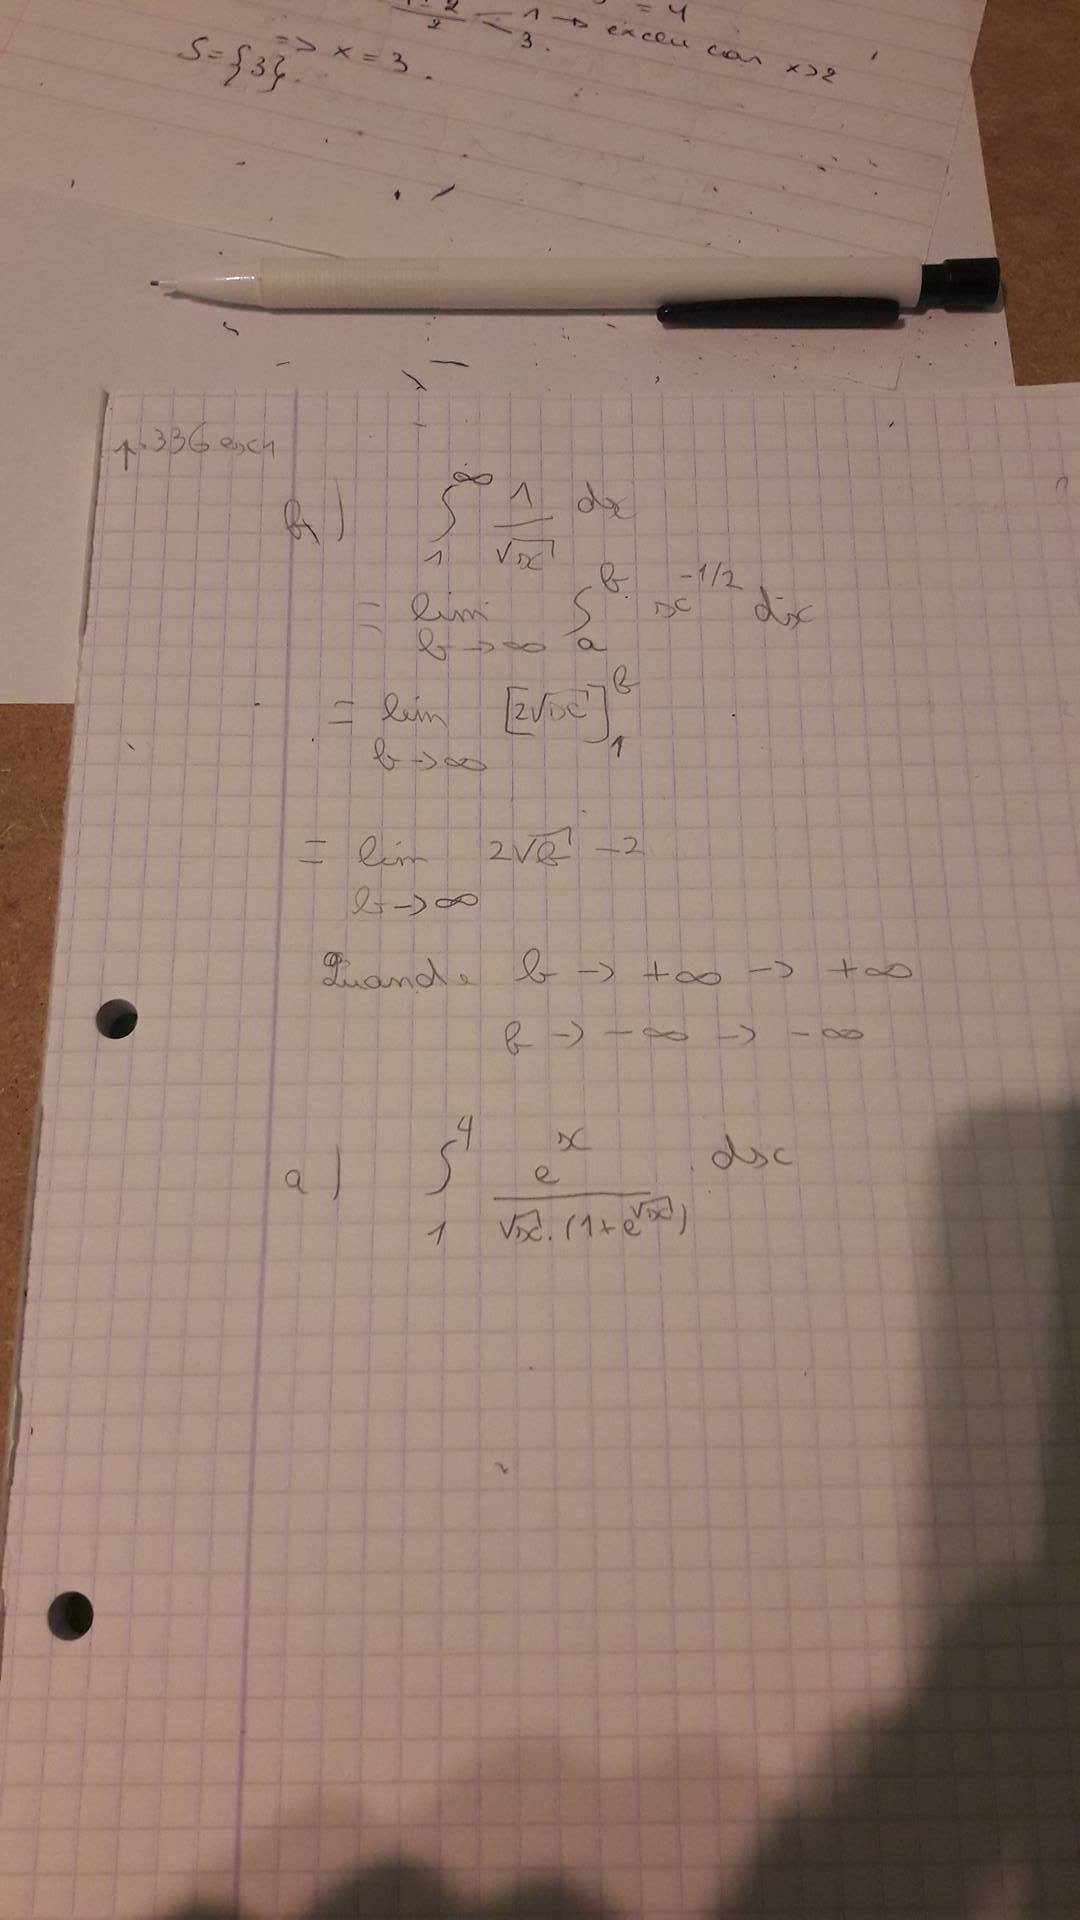 = 4
1 → exclu car x>2
2 3.
=> x = 3.
S={3}.
p.336 ex 1
b) ∫₁^∞ 1/√x dx
= lim b→∞ ∫ₐ^b x^-1/2 dx
= lim b→∞ [2√x]₁^b
= lim b→∞ 2√b -2
Quand b → +∞ → +∞
b → -∞ → -∞
a) ∫₁^4 e^x/(√x.(1+e^√x)) dx